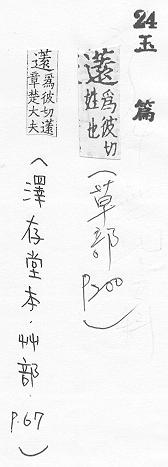 24
玉篇
薳為彼切
姓也
(草部
P200)
薳為彼切薳
章楚大夫
(澤存堂本·艸部·
P.67)